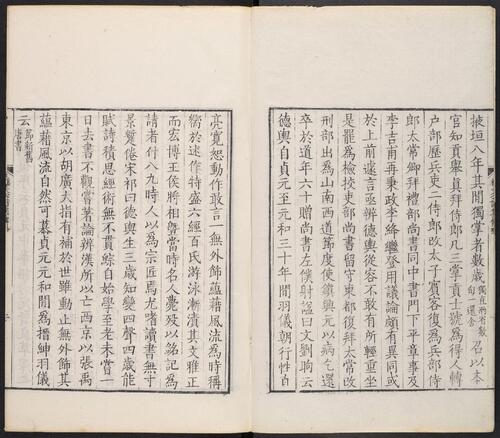 掖垣八年其間獨掌者數歲獨直兩省數旬一還舍召以本
官知貢舉真拜侍郎凡三掌貢士號為得人轉
戶部歷兵吏二侍郎改太子賓客復為兵部侍
郎太常卿拜禮部尚書同中書門下平章事及
李吉甫再秉政李絳繼登用議論頗有異同或
於上前遽言亟辯德輿從容不敢有所輕重坐
是罷為檢挍吏部尚書留守東都復拜太常改
刑部出為山南西道節度使鎮興元以病乞還
卒於道年六十贈尚書左僕射謚曰文劉昫云
德輿自貞元至元和三十年間羽儀朝行性直
亮寬恕動作敢言一無外飾蘊藉風流為時稱
嚮於述作特盛六經百氏游泳漸漬其文雅正
而宏博王侯將相洎當時名人薨歿以銘記為
請者什八九時人以為宗匠焉尤嗜讀書無寸
景蹔倦宋祁曰德輿生三歲知變四聲四歲能
賦詩積思經術無不貫綜自始學至老未嘗一
日去書不觀嘗著論辨漢所以亡西京以張禹
東京以胡廣大指有補於世雖動止無外飾其
蘊藉風流自然可慕貞元元和間為搢紳羽儀
云節新舊唐書